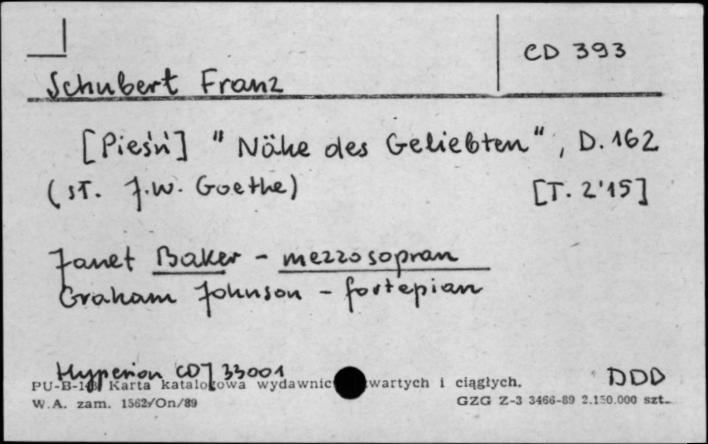 CD 393
Schubert Franz
[Pieśń] "Nähe des Geliebten", D. 162
(sł. J.W. Goethe) [T. 2'15]
Janet Baker - mezzosopran
Graham Johnson - fortepian
Hyperion CDJ 33001 DDD
PU-B-1 Karta katalogowa wydawnic wartych i ciągłych.
W.A. zam. 1562/On/89 GZG Z-3 3466-89 2.150.000 szt.